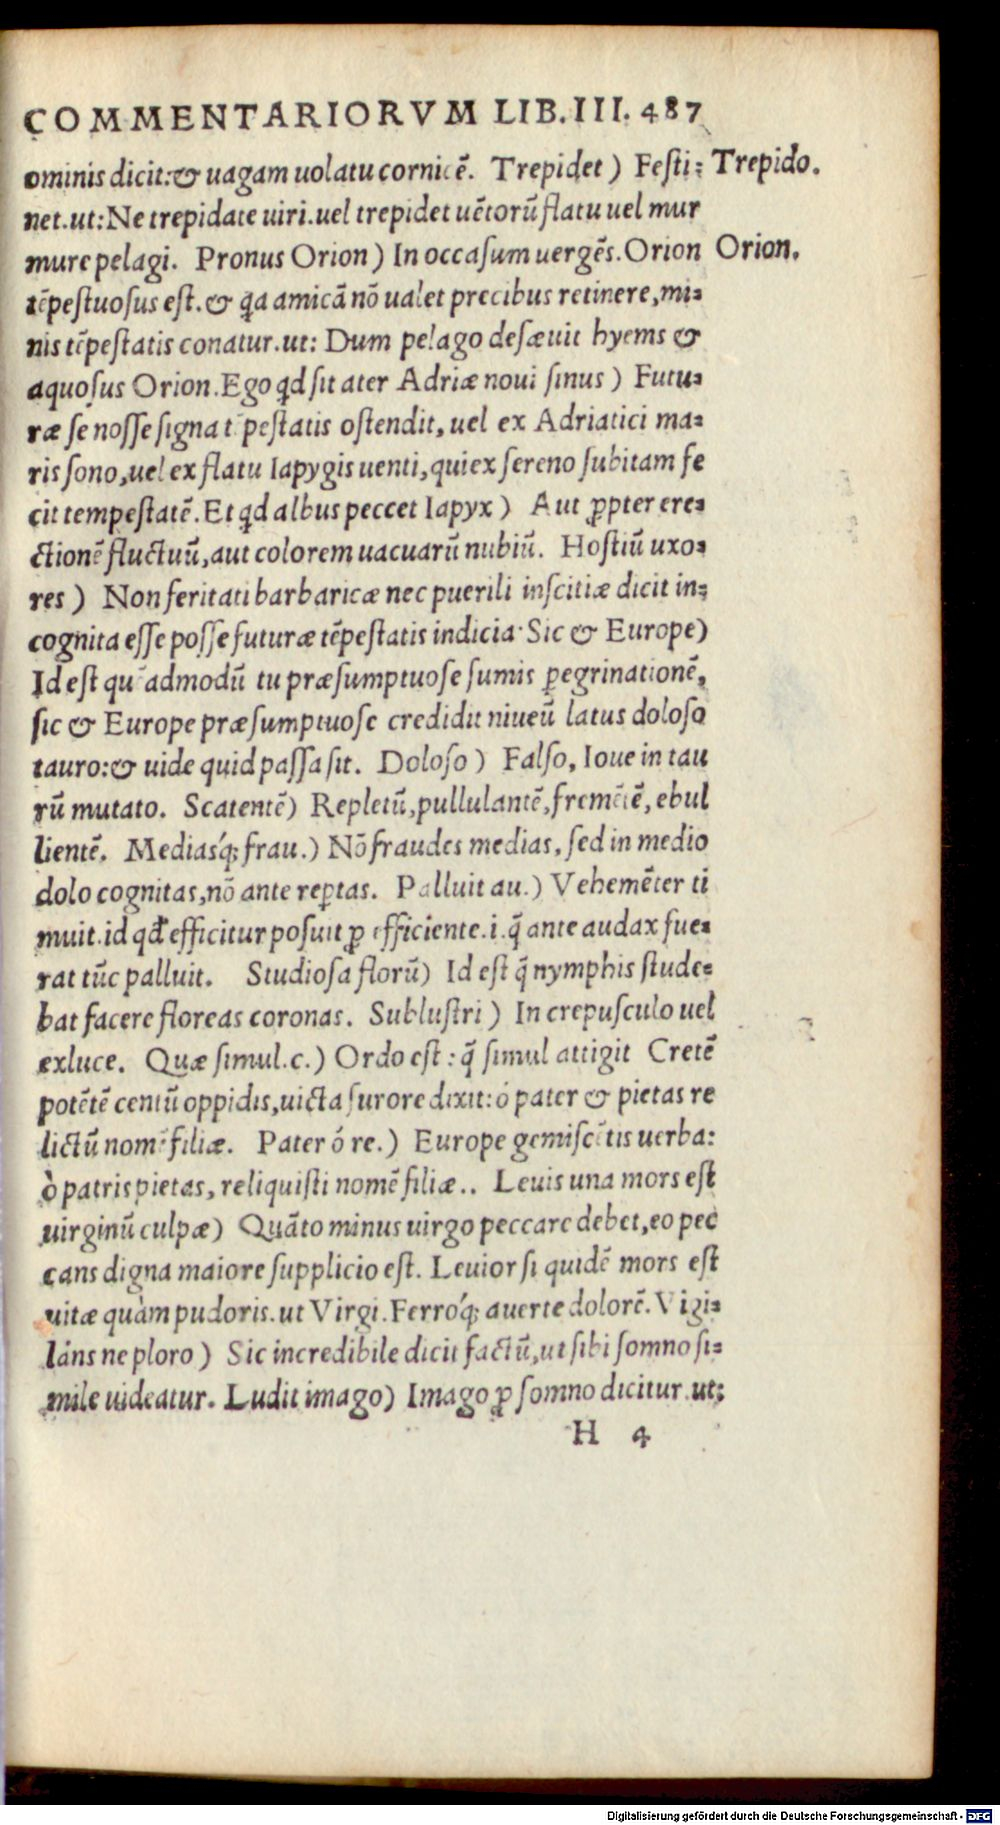 COMMENTARIORVM LIB.III. 487
ominis dicit:& uagam uolatu cornicē. Trepidet ) Festi= Trepido.
net.ut:Ne trepidate uiri.uel trepidet uētorū flatu uel mur
mure pelagi. Pronus Orion ) In occasum uergēs.Orion Orion.
tēpestuosus est.& q̇a amicā nō ualet precibus retinere,mi=
nis tēpestatis conatur.ut: Dum pelago desæuit hyems &
aquosus Orion.Ego qd̓ sit ater Adriæ noui sinus ) Futu=
ræ se nosse signa tēpestatis ostendit, uel ex Adriatici ma=
ris sono,uel ex flatu Iapygis uenti,qui ex sereno subitam fe
cit tempestatē.Et qd̓ albus peccet Iapyx ) Aut ꝓpter ere=
ctionē fluctuū,aut colorem uacuarū nubiū. Hostiū uxo=
res ) Non feritati barbaricæ nec puerili inscitiæ dicit in=
cognita esse posse futuræ tēpestatis indicia· Sic & Europe)
Id est quēadmodū tu præsumptuose sumis ꝑegrinationē,
sic & Europe præsumptuose credidit niueū latus doloso
tauro:& uide quid passa sit. Doloso ) Falso, Ioue in tau
rū mutato. Scatentē) Repletū,pullulantē,fremētē,ebul
lientē. Mediasq́; frau.) Nō fraudes medias, sed in medio
dolo cognitas,nō ante reꝑtas. Palluit au.) Vehemēter ti
muit.id qd̓ efficitur posuit ꝓ efficiente.i.q̄ ante audax fue=
rat tūc palluit. Studiosa florū) Id est q̄ nymphis stude=
bat facere floreas coronas. Sublustri ) In crepusculo uel
exluce. Quæ simul.c.) Ordo est : q̄ simul attigit Cretē
potētē centū oppidis,uicta furore dixit:ó pater & pietas re
lictū nomē filiæ. Pater ó re.) Europe gemiscētis uerba:
ò patris pietas, reliquisti nomē filiæ.. Leuis una mors est
uirginū culpæ) Quāto minus uirgo peccare debet,eo pec
cans digna maiore supplicio est. Leuior si quidē mors est
uitæ quàm pudoris.ut Virgi.Ferroq́; auerte dolorē.Vigi=
láns ne ploro ) Sic incredibile dicit factū,ut sibi somno si=
mile uideatur. Ludit imago) Imago ꝓ somno dicitur.ut:
H 4
Digitalisierung gefördert durch die Deutsche Forschungsgemeinschaft - DFG